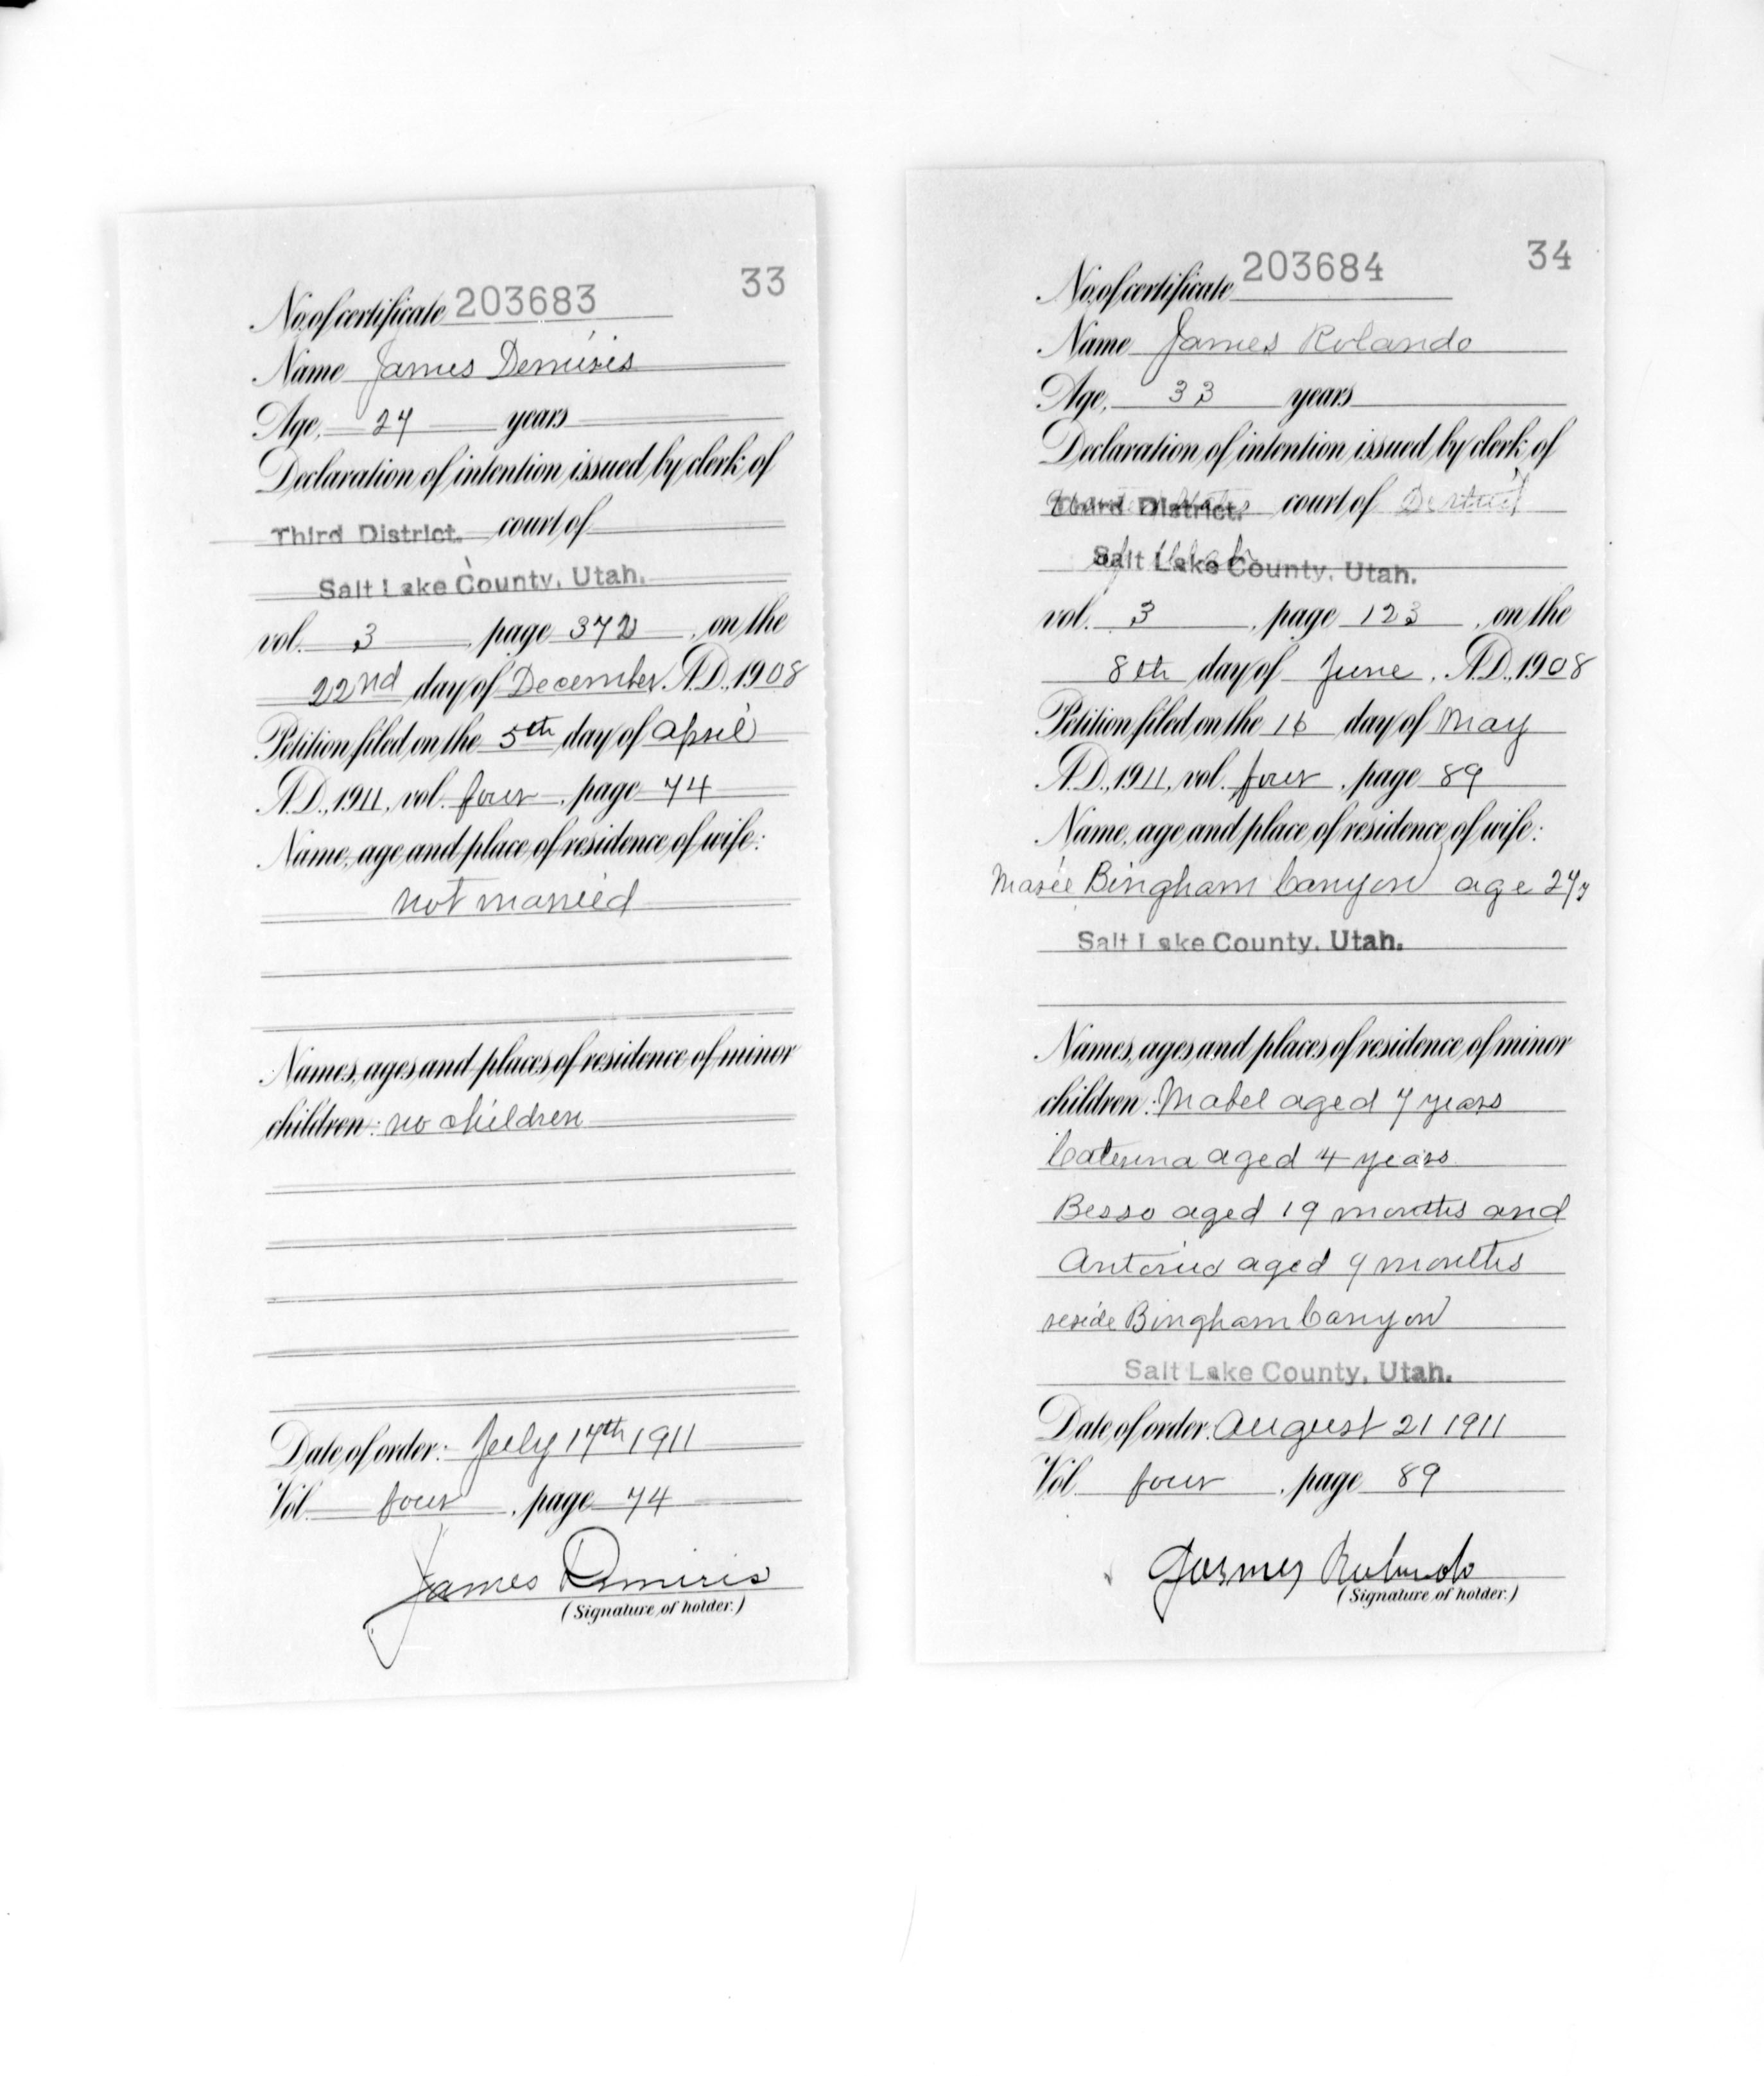 33
No. of certificate 203683
Name James Demiris
Age, 27 years
Declaration of intention issued by clerk of
Third District. court of
Salt Lake County, Utah.
vol. 3, page 372, on the
22nd day of December A.D., 1908
Petition filed on the 5th day of April
A.D., 1911, vol. four, page 74
Name, age and place of residence of wife:
not married
Names, ages and places of residence of minor
children: no children
Date of order: July 17th 1911
Vol. four, page 74
James Demiris
(Signature of holder.)
34
No. of certificate 203684
Name James Rolando
Age, 33 years
Declaration of intention issued by clerk of
Third District. court of
Salt Lake County, Utah.
vol. 3, page 123, on the
8th day of June, A.D., 1908
Petition filed on the 16 day of May
A.D., 1911, vol. four, page 89
Name, age and place of residence of wife:
Marie Bingham Canyon age 27y
Salt Lake County, Utah.
Names, ages and places of residence of minor
children: Mabel aged 7 years
Caterina aged 4 years
Besso aged 19 months and
Antonio aged 9 months
reside Bingham Canyon
Salt Lake County, Utah.
Date of order: August 21 1911
Vol. four, page 89
James Rolando
(Signature of holder.)